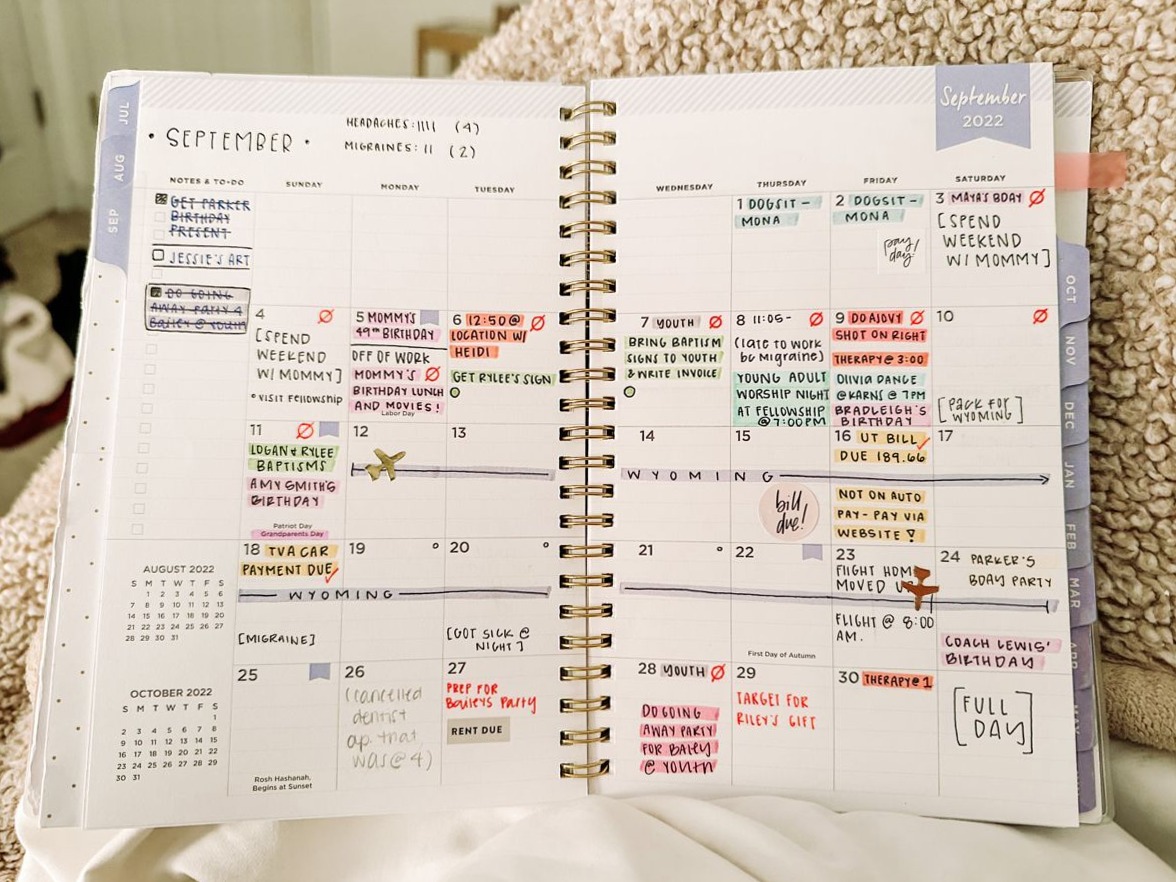 September
2022
JUL
AUG
SEP
• SEPTEMBER •
HEADACHES: IIII (4)
MIGRAINES: II (2)
NOTES & TO-DO
SUNDAY
MONDAY
TUESDAY
WEDNESDAY
THURSDAY
FRIDAY
SATURDAY
GET PARKER
BIRTHDAY
PRESENT
JESSIE'S ART
DO GOING
AWAY PARTY 4
Bailey @ YOUTH
1 DOGSIT -
MONA
2 DOGSIT -
MONA
pay
day!
3 MAYA'S BDAY
[SPEND
WEEKEND
W/ MOMMY]
4
[SPEND
WEEKEND
W/ MOMMY]
° VISIT FELLOWSHIP
5 MOMMY'S
49TH BIRTHDAY
OFF OF WORK
MOMMY'S
BIRTHDAY LUNCH
AND MOVIES!
Labor Day
6 12:50 @
LOCATION W/
HEIDI
GET RYLEE'S SIGN
7 YOUTH
BRING BAPTISM
SIGNS TO YOUTH
& WRITE INVOICE
8 11:05-
(late to work
bc Migraine)
YOUNG ADULT
WORSHIP NIGHT
AT FELLOWSHIP
@ 7:00PM
9 DO AJOVY
SHOT ON RIGHT
THERAPY @ 3:00
OLIVIA DANCE
@ KARNS @ 7PM
BRADLEIGH'S
BIRTHDAY
10
[PACK FOR
WYOMING]
11
LOGAN & RYLEE
BAPTISMS
AMY SMITH'S
BIRTHDAY
Patriot Day
Grandparents Day
12
13
14
15
16 UT BILL
DUE 189.66
17
WYOMING
bill
due!
NOT ON AUTO
PAY- PAY VIA
WEBSITE !
18 TVA CAR
PAYMENT DUE
WYOMING
[MIGRAINE]
19
20
[GOT SICK @
NIGHT]
21
22
First Day of Autumn
23
FLIGHT HOME
MOVED
FLIGHT @ 8:00
AM.
24 PARKER'S
BDAY PARTY
COACH LEWIS'
BIRTHDAY
25
Rosh Hashanah,
Begins at Sunset
26
(cancelled
dentist
ap. that
was @ 4)
27
PREP FOR
Baileys Party
RENT DUE
28 YOUTH
DO GOING
AWAY PARTY
FOR BAILEY
@ YOUTH
29
TARGET FOR
RILEY'S GIFT
30 THERAPY @ 1
[FULL
DAY]
AUGUST 2022
S M T W T F S
1 2 3 4 5 6
7 8 9 10 11 12 13
14 15 16 17 18 19 20
21 22 23 24 25 26 27
28 29 30 31
OCTOBER 2022
S M T W T F S
1
2 3 4 5 6 7 8
9 10 11 12 13 14 15
16 17 18 19 20 21 22
23 24 25 26 27 28 29
30 31
OCT
NOV
DEC
JAN
FEB
MAR
APR
MAY